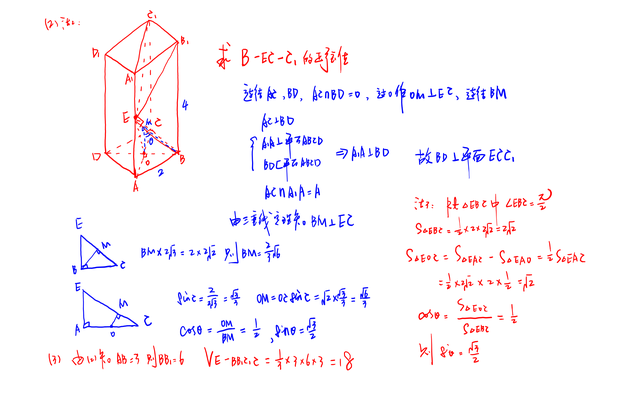 (2) 法2:
C₁
D₁
B₁
A₁
E
M
C
4
D
O
B
2
A
求 B-EC-C₁ 的正弦值
连结AC, BD, AC∩BD=O, 过O作OM⊥EC, 连结BM
AC⊥BD
A₁A⊥平面ABCD
BD⊂平面ABCD
⇒A₁A⊥BD
故BD⊥平面ECC₁
AC∩A₁A=A
由三垂线定理知 BM⊥EC
E
M
B
C
BM×2√3=2×2√2 则BM=2/3√6
E
M
A
O
C
sinC=2/2√3=√3/3 OM=OC sinC=√2×√3/3=√6/3
cosθ=OM/BM=1/2, sinθ=√3/2
法3: △EBC中∠EBC=π/2
S△EBC=1/2×2×2√2=2√2
S△EOC=S△EAC-S△EAO=1/2S△EAC
=1/2×2√2×2×1/2=√2
cosθ=S△EOC/S△EBC=1/2
则 sinθ=√3/2
(3) 由(2)知 AB=3 则BB₁=6 V E-BB₁C₁C=1/3×3×6×3=18